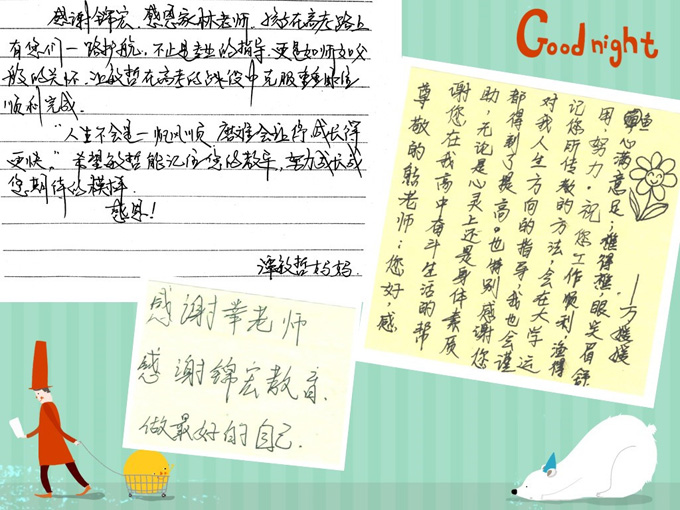 Good night
感谢锦宏、感恩家林老师,孩子在高考路上
有您们一路护航,不止是专业的指导,更是如师如父
般的关怀,让敏哲在高考的战役中克服重重
顺利完成。
“人生不会是一帆风顺,磨难会让你成长得
更快。”希望敏哲能记住您的教导,努力成长成
您期待的模样。
感恩!
谭敏哲妈妈
尊敬的熊老师:您好,感
谢您在我高中奋斗生活的帮
助,无论是心灵上还是身体素质
都得到了提高。也特别感谢您
对我人生方向的指导,我也会谨
记您所传教的方法,会在大学运
用,努力。祝您工作顺利,渔得
鱼心满意足;樵得樵眼笑眉舒
——万媛媛
感谢 老师
感谢锦宏教育.
做最好的自己.